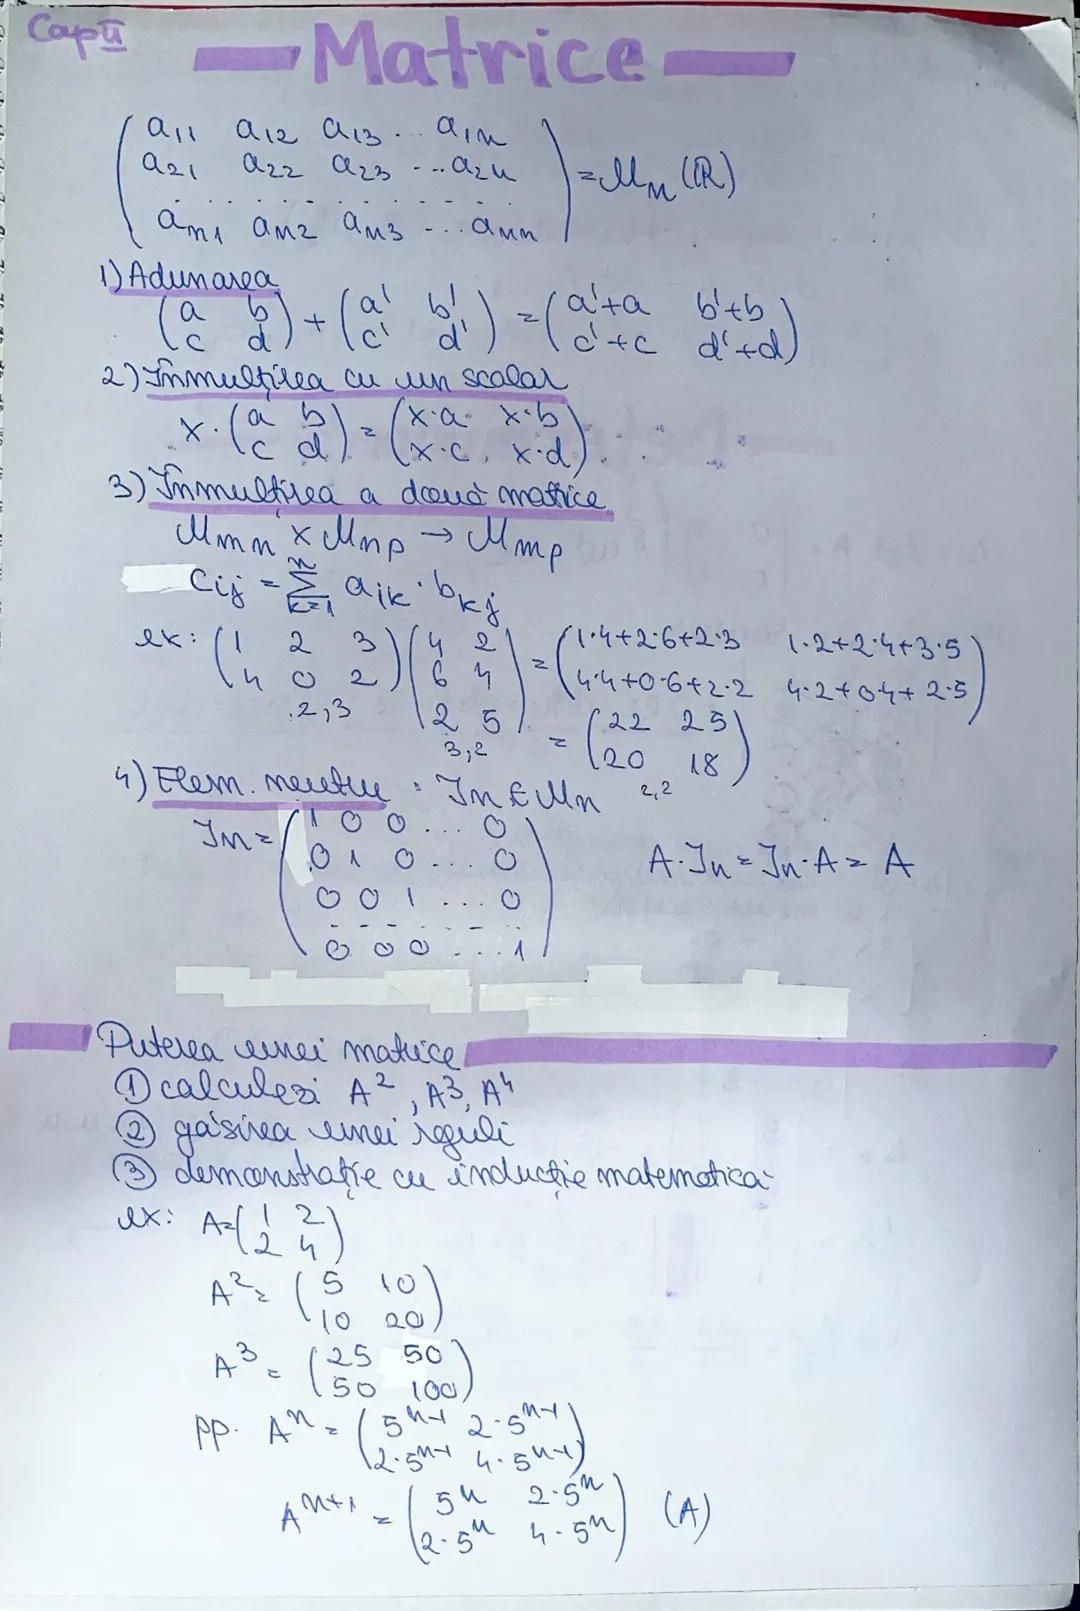 Cap II
Matrice
( a11 a12 a13 ... a1n
a21 a22 a23 ... a2n ) = Mn (R)
. . . . . . . . . .
an1 an2 an3 ... ann
1) Adunarea
(a b
c d) + (a' b'
c' d') = (a'+a b'+b
c'+c d'+d)
2) Înmulțirea cu un scalar
x · (a b
c d) = (x·a x·b
x·c x·d)
3) Înmulțirea a două matrice
Mmn × Mnp → Mmp
Cij = Σ(k=1, n) aik · bkj
ex: (1 2 3
4 0 2) 2,3 (4 2
6 4
2 5) 3,2 = (1·4+2·6+2·3 1·2+2·4+3·5
4·4+0·6+2·2 4·2+0·4+2·5)
= (22 25
20 18) 2,2
4) Elem. neutru : In ∈ Mn
In = (1 0 0 ... 0
0 1 0 ... 0
0 0 1 ... 0
. . . . . . .
0 0 0 ... 1)
A·In = In·A = A
Puterea unei matrice
① calculezi A², A³, A⁴
② găsirea unei reguli
③ demonstrație cu inducție matematică
ex: A=(1 2
2 4)
A² = (5 10
10 20)
A³ = (25 50
50 100)
pp. Aⁿ = (5ⁿ⁻¹ 2·5ⁿ⁻¹
2·5ⁿ⁻¹ 4·5ⁿ⁻¹)
Aⁿ⁺¹ = (5ⁿ 2·5ⁿ
2·5ⁿ 4·5ⁿ) (A)